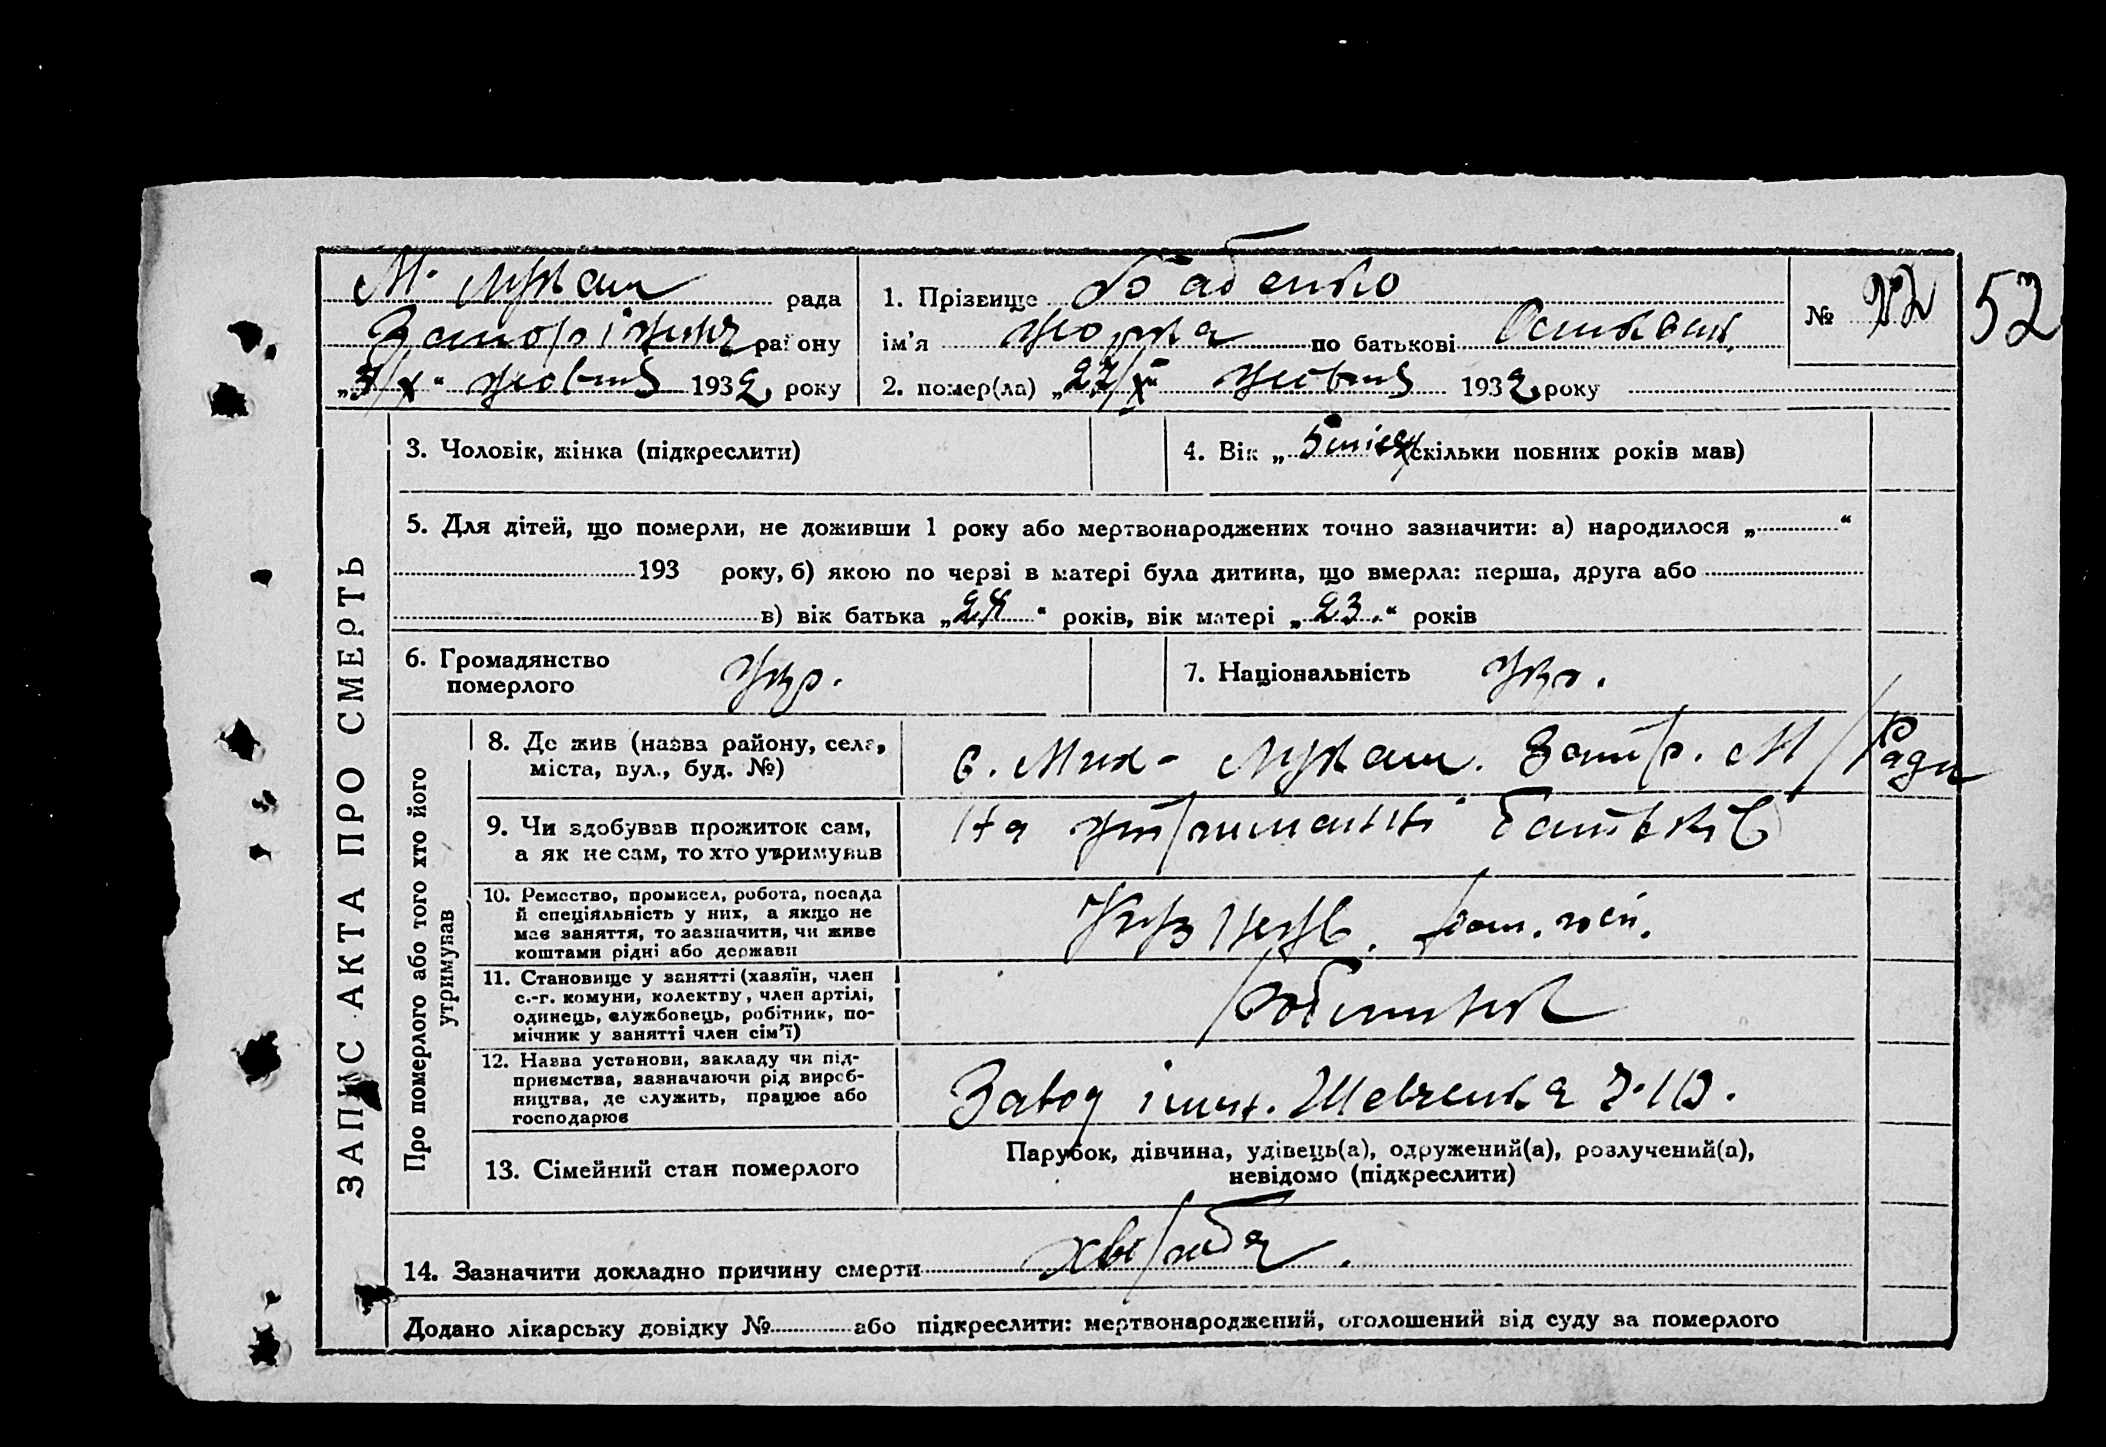 М. Лукаш рада
Запоріжжя району
„3/X“ жовтня 1932 року
1. Прізвище Бабенко
ім'я по батькові
2. помер(ла) „27/X“ жовтня 1932 року
№ 22
52
ЗАПИС АКТА ПРО СМЕРТЬ
3. Чоловік, жінка (підкреслити)
4. Вік „5 міся (скільки повних років мав)
5. Для дітей, що померли, не доживши 1 року або мертвонароджених точно зазначити: а) народилося „ “
193 року, б) якою по черзі в матері була дитина, що вмерла: перша, друга або
в) вік батька „24“ років, вік матері „23.“ років
6. Громадянство
померлого
Укр.
7. Національність Укр.
Про померлого або того хто його
утримував
8. Де жив (назва району, села,
міста, вул., буд. №)
с. Мих- Лукаш. Запор. М/Ради
9. Чи здобував прожиток сам,
а як не сам, то хто утримував
На утриманні батьків
10. Ремество, промисел, робота, посада
й спеціяльність у них, а якщо не
має заняття, то зазначити, чи живе
коштами рідні або держави
11. Становище у занятті (хазяїн, член
с.-г. комуни, колективу, член артілі,
одинець, службовець, робітник, по-
мічник у занятті член сім'ї)
Робітник
12. Назва установи, закладу чи під-
приємства, зазначаючи рід вироб-
ництва, де служить, працює або
господарює
Завод імен. Шевченка
13. Сімейний стан померлого
Парубок, дівчина, удівець(а), одружений(а), розлучений(а),
невідомо (підкреслити)
14. Зазначити докладно причину смерти хвороба.
Додано лікарську довідку № або підкреслити: мертвонароджений, оголошений від суду за померлого